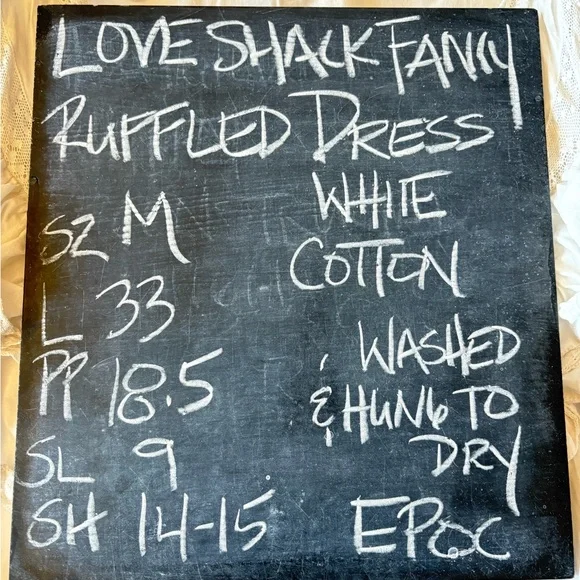 LOVESHACKFANCY
RUFFLED DRESS
SZ M
WHITE
COTTON
L 33
PP 18.5
WASHED
& HUNG TO
DRY
SL 9
SH 14-15
EPOC